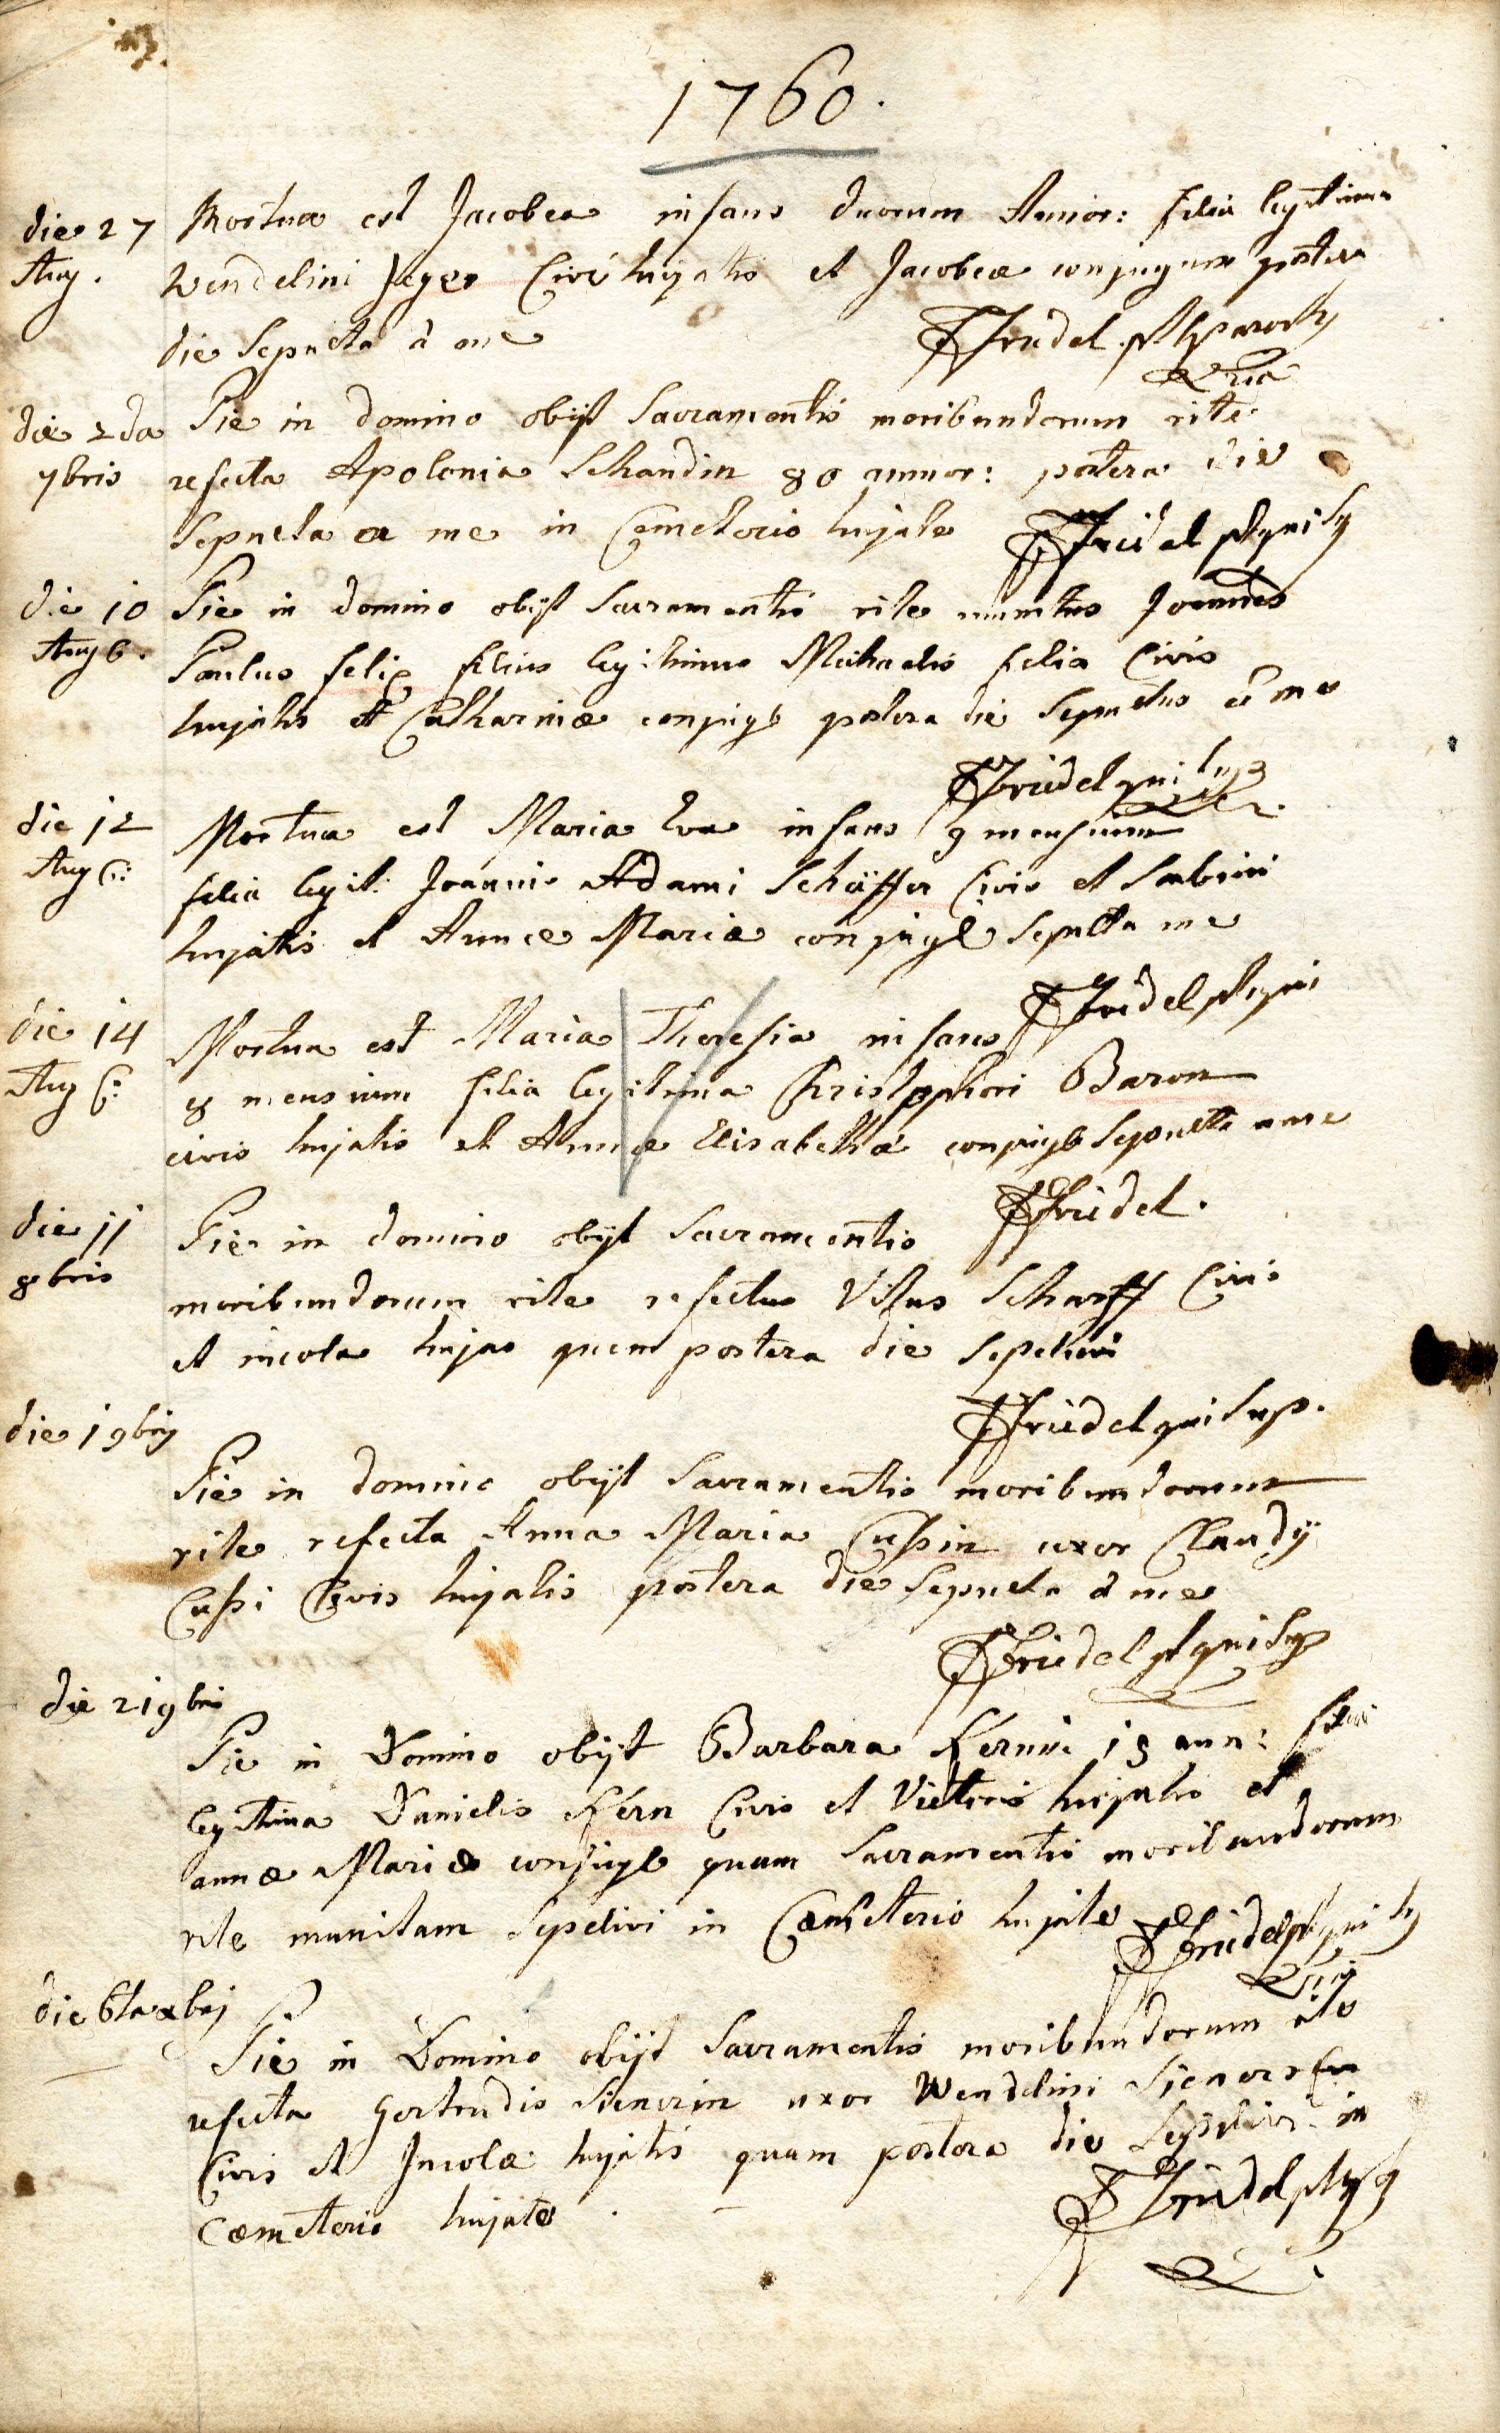 1760.
die 27 Mortua est Jacobea infans duorum Annor: filia legitima
Aug. Wendelini Jeger Civis hujatis et Jacobeæ conjugum postera
die Sepulta à me Friedel
die 2da Pie in domino obijt Sacramentis moribundorum rite
7bris refecta Apolonia Schandin 80 annor: postera die
Sepulta a me in Cemeterio hujate Friedel
die 10 Pie in domino obijt Sacramentis rite munitus Joannes
Paulus felix filius legitimus Michaelis felix Civis
hujatis et Catharinæ conjugb postera die Sepultus à me
Friedel
die 12 Mortua est Maria Eva infans 9 mensium
filia legit: Joannis Adami Schäffer Civis et
hujatis et Annæ Mariæ conjugb Sepulta me
Friedel
die 14 Mortua est Maria Theresia infans
8 mensium filia legitima Christophori Baron
civis hujatis et Annæ Elisabethæ conjugb Sepulta a me
Friedel.
die 11 Pie in domino obijt Sacramentis
8bris moribundorum rite refectus Vitus Scharff Civis
et incola hujas quem postera die Sepelivi
Friedel qui sup.
die 1 9bris
Pie in domino obijt Sacramentis moribundorum
rite refecta Anna Maria Cußin uxor Claudij
Cußi Civis hujatis postera die Sepulta à me
Friedel
die 21 9bris
Pie in Domino obijt Barbara Kernin ann: filia
legitima Danielis Kern Civis et hujatis et
annæ Mariæ conjugb quam Sacramentis moribundorum
rite munitam Sepelivi in Cæmeterio hujate Friedel
die 6ta xbris
Pie in Domino obijt Sacramentis moribundorum rite
refecta Gertrudis Sienerin uxor Wendelini Siener
Civis et Incolæ hujatis quam postera die Sepelivi in
Cæmeterio hujate. Friedel